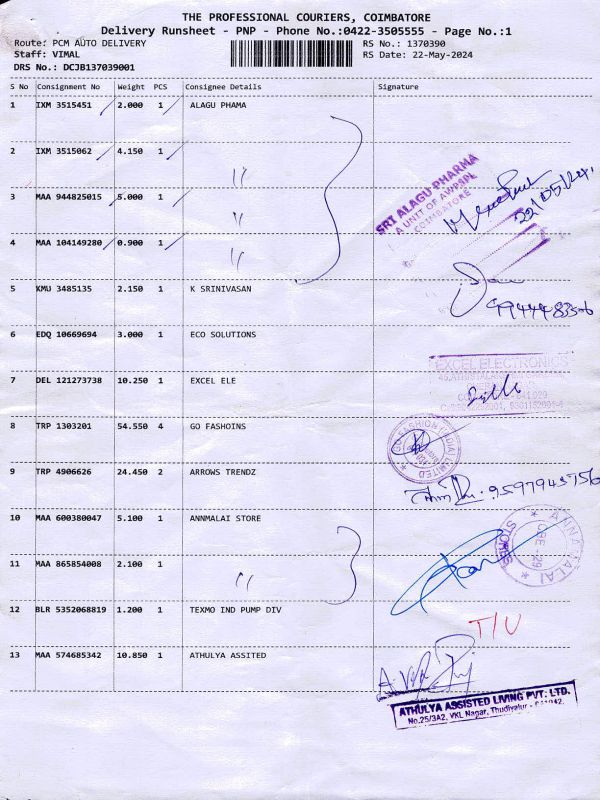 THE PROFESSIONAL COURIERS, COIMBATORE
Delivery Runsheet - PNP - Phone No.:0422-3505555 - Page No.:1
Route: PCM AUTO DELIVERY RS No.: 1370390
Staff: VIMAL RS Date: 22-May-2024
DRS No.: DCJB137039001
S No Consignment No Weight PCS Consignee Details Signature
1 IXM 3515451 2.000 1 ALAGU PHAMA
2 IXM 3515062 4.150 1 〃
SRI ALAGU PHARMA
A UNIT OF AWPBPL
COIMBATORE
22/05/24
3 MAA 944825015 5.000 1 〃
4 MAA 104149280 0.900 1 〃
5 KMU 3485135 2.150 1 K SRINIVASAN
6 EDQ 10669694 3.000 1 ECO SOLUTIONS
EXCEL ELECTRONICS
7 DEL 121273738 10.250 1 EXCEL ELE
8 TRP 1303201 54.550 4 GO FASHOINS
GO FASHION (INDIA) LIMITED
9 TRP 4906626 24.450 2 ARROWS TRENDZ
9597943756
10 MAA 600380047 5.100 1 ANNMALAI STORE
ANNAMALAI STORES
CBE - 29
11 MAA 865854008 2.100 1 〃
12 BLR 5352068819 1.200 1 TEXMO IND PUMP DIV T/U
13 MAA 574685342 10.850 1 ATHULYA ASSITED
ATHULYA ASSISTED LIVING PVT. LTD.
No.25/3A2, VKL Nagar, Thudiyalur -